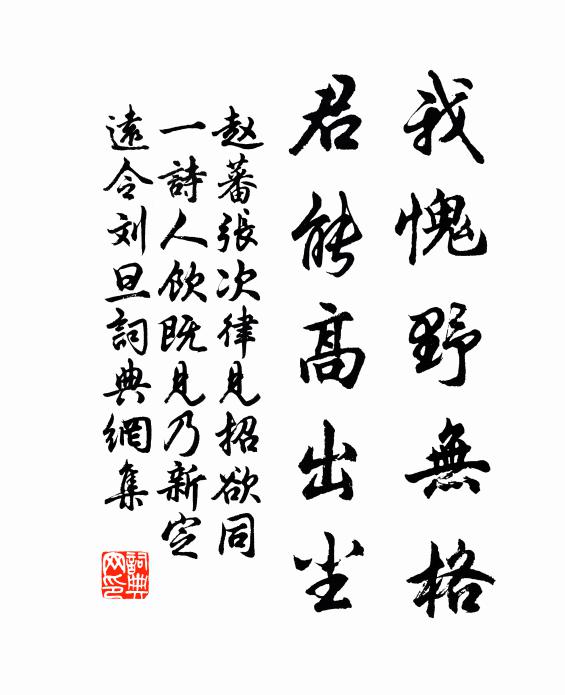 我愧野無格
君能高出尘
赵蕃張次律见招欲同
一詩人飲既见乃新定
遠令刘旦詞典網集
詞典网印